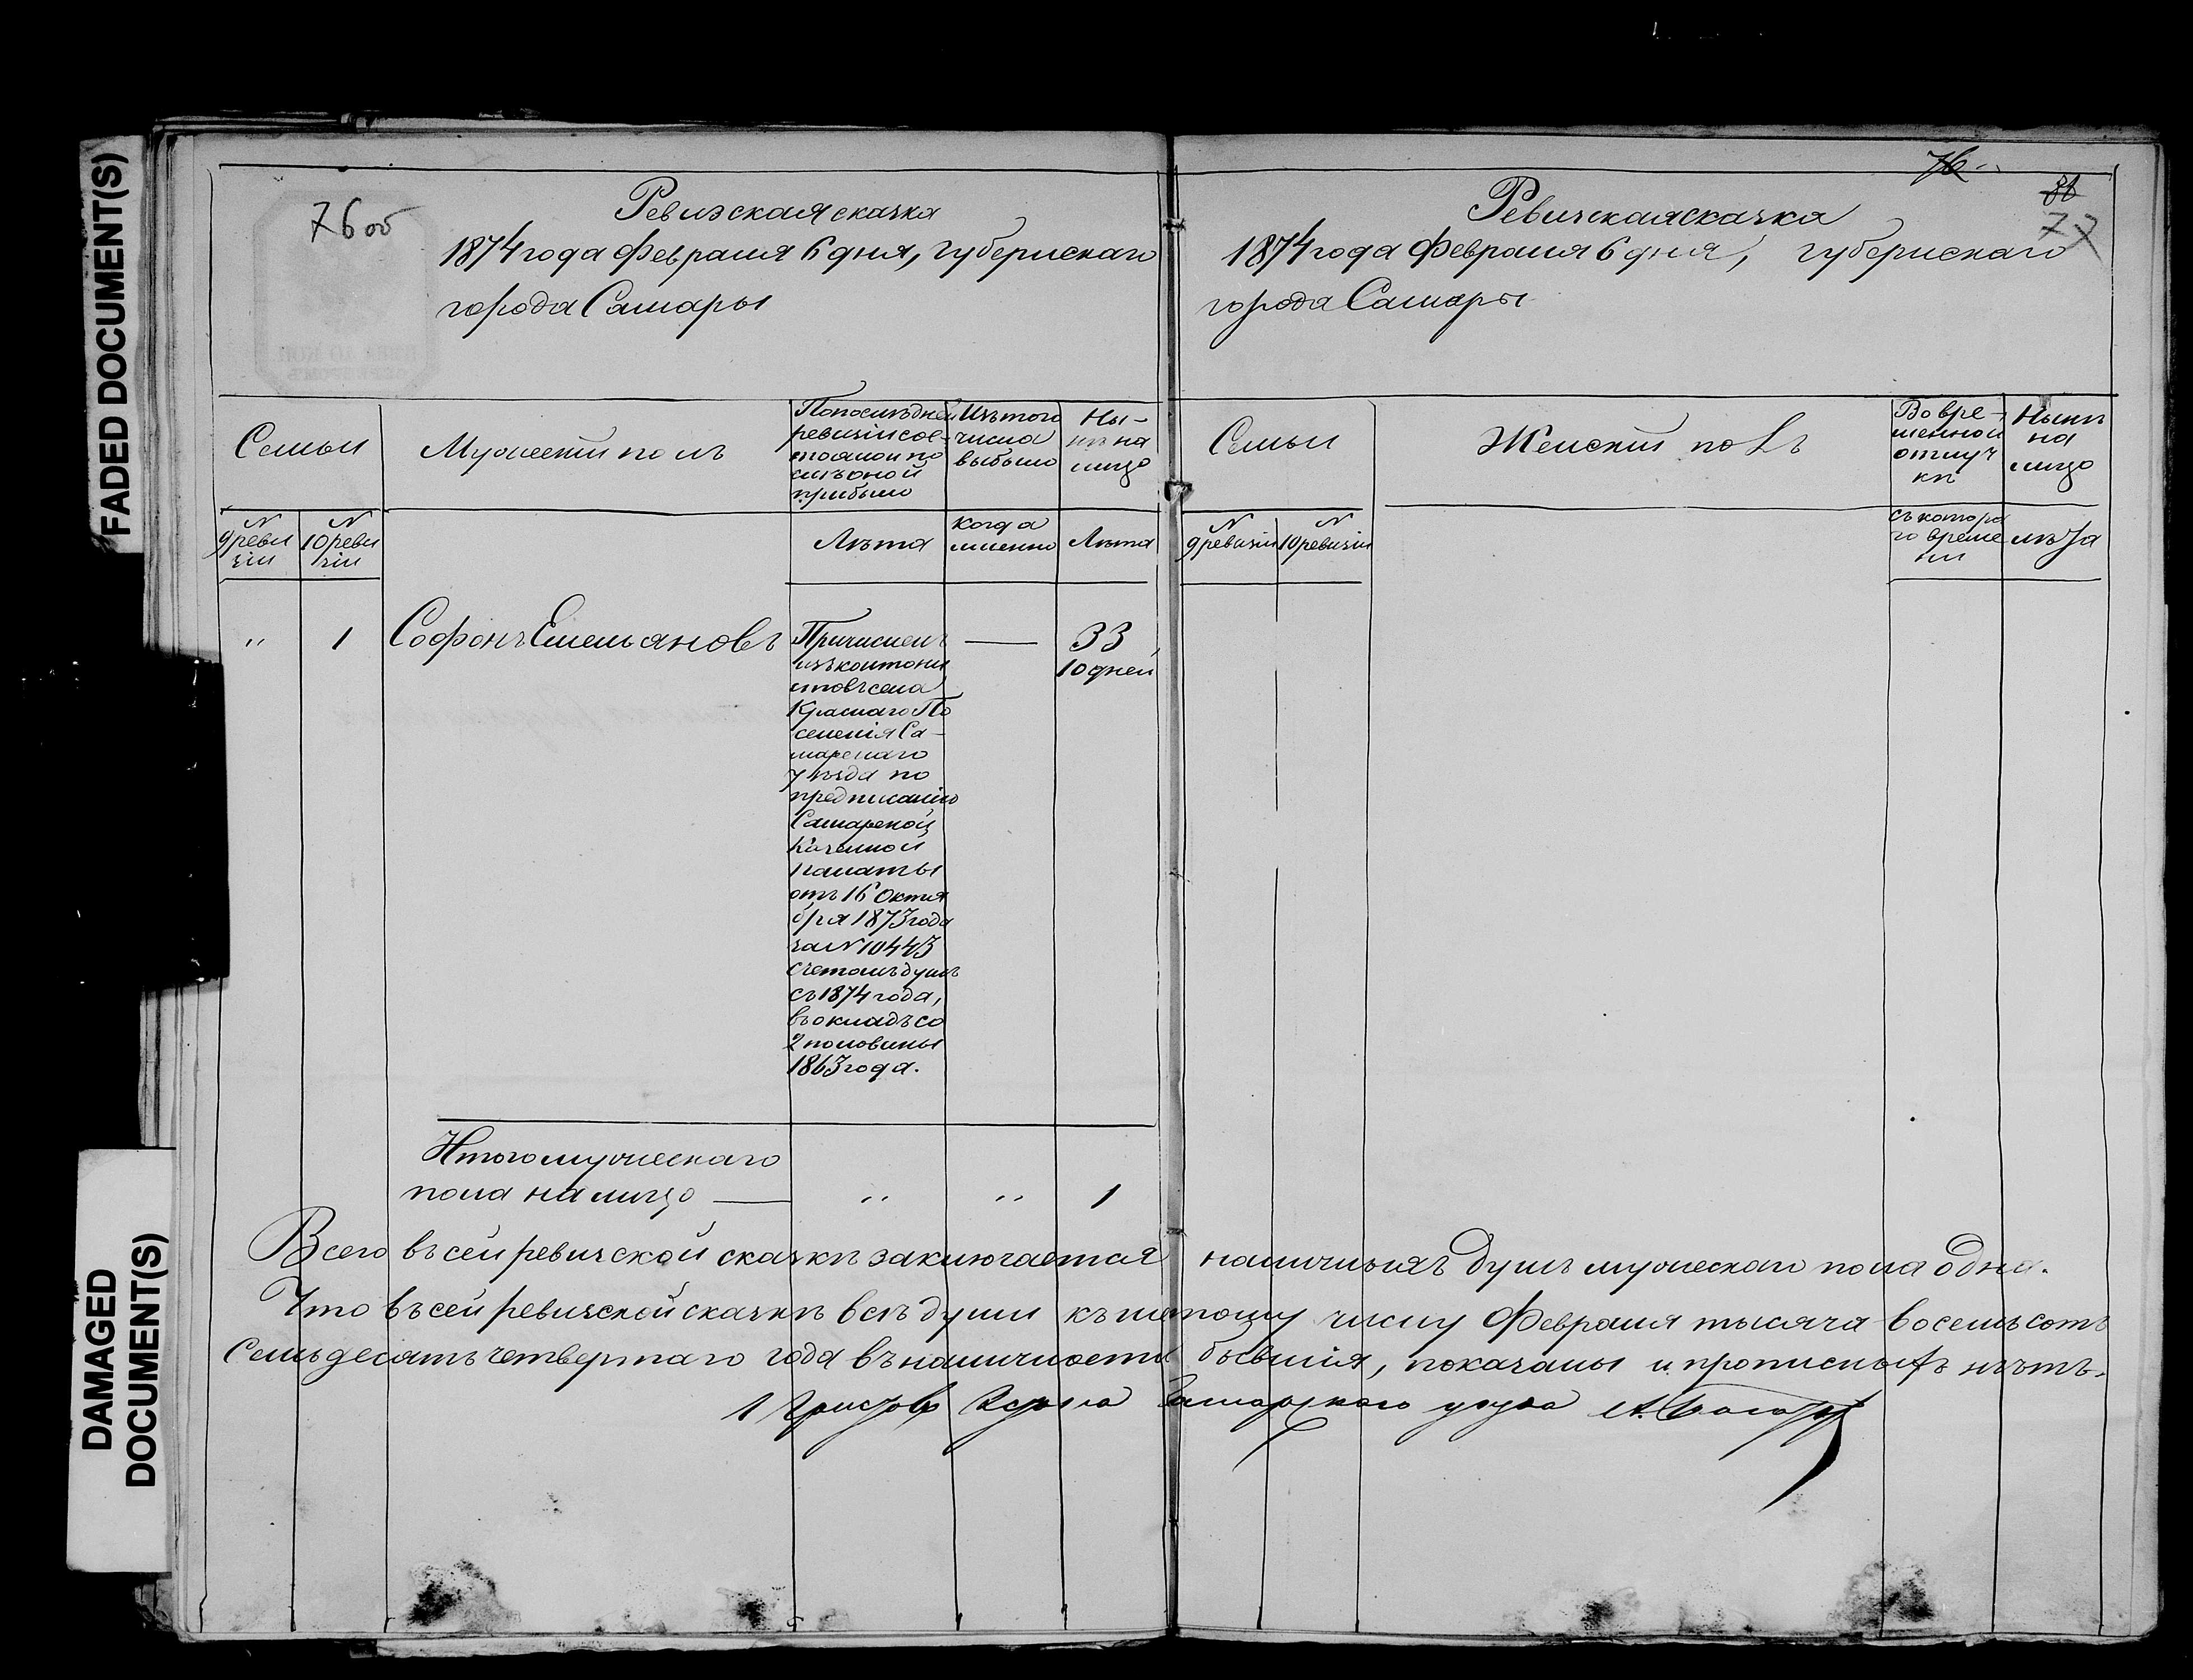 FADED DOCUMENT(S)
DAMAGED
DOCUMENT(S)
76об
Ревизская сказка
1874 года Февраля 6 дня, губернскаго
города Самары
Семьи
Мужескій полъ
По последней
ревизіи сос-
тояло и по
слѣ оной
прибыло
Изъ того
числа
выбыло
Ны-
нѣ на
лицо
N
9 реви
зіи
N
10 реви
зіи
Лѣта
когда
именно
Лѣта
"
1
Софонъ Емельяновъ
Причисленъ
изъ кантони
стовъ села
Краснаго По
селенія Са-
марскаго
уѣзда по
предписанію
Самарской
Казенной
палаты
отъ 16 Октя
бря 1873 года
за N 10443
счетомъ душъ
съ 1874 года,
въ окладъ со
2 половины
1863 года.
—
33
10 дней
Итого мужескаго
пола на лицо — " " 1
76
77
Ревизская сказка
1874 года Февраля 6 дня, губернскаго
города Самары
Семьи
Женскій полъ
Во вре-
менной
отлуч
кѣ
Нынѣ
на
лицо
N
9 ревизіи
N
10 ревизіи
съ котора
го време
ни
лѣта
Всего въ сей ревизской сказкѣ заключается наличныхъ душъ мужескаго пола одна.
Что въ сей ревизской сказкѣ всѣ души къ шестому числу Февраля тысяча восемьсотъ
семьдесятъ четвертаго года въ наличности бывшія, показаны и прописныхъ нѣтъ.
Самарскаго уѣзда